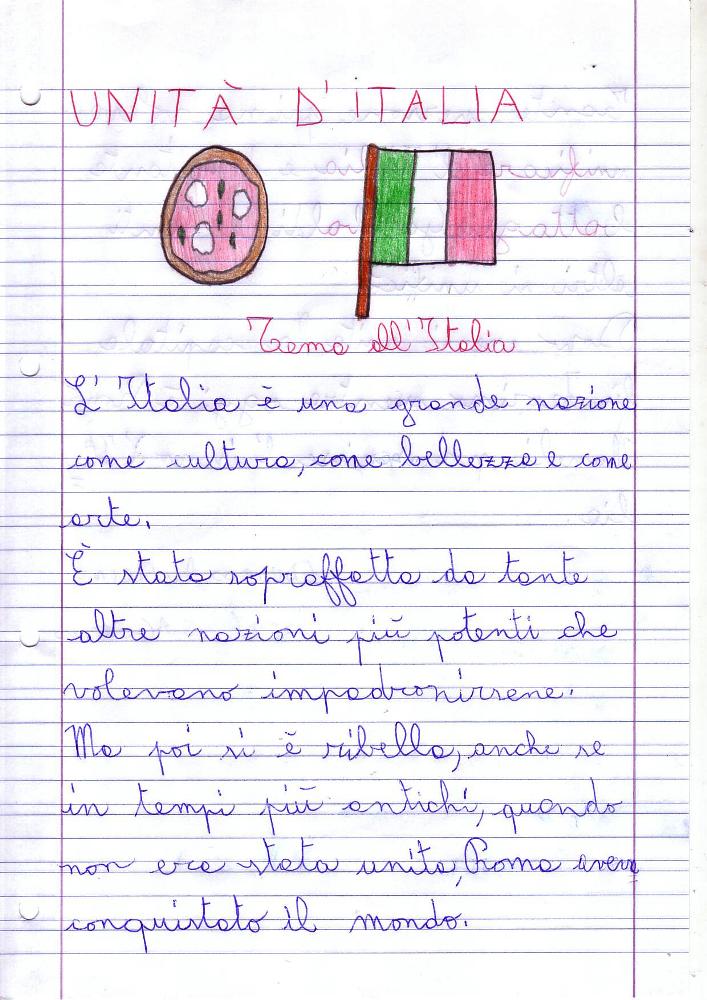 UNITÀ D'ITALIA
Tema all'Italia
L'Italia è una grande nazione
come cultura, come bellezza e come
arte.
È stata sopraffatta da tante
altre nazioni più potenti che
volevano impadronirsene.
Ma poi si è ribella, anche se
in tempi più antichi, quando
non era stata unita, Roma aveva
conquistato il mondo.